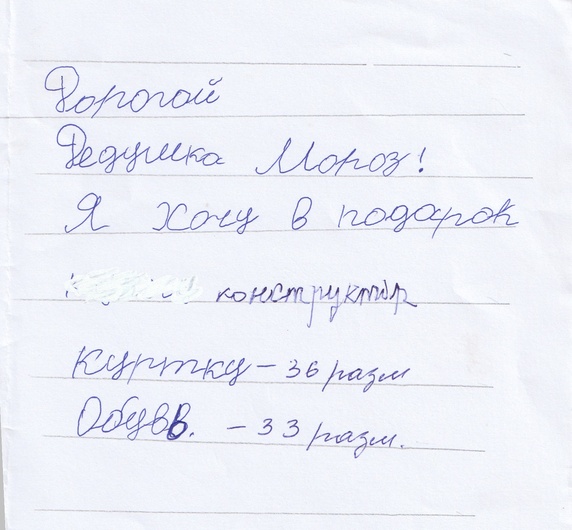 Дорогой
Дедушка Мороз!
Я хочу в подарок
конструктор
Куртку – 36 разм
Обувь. – 33 разм.